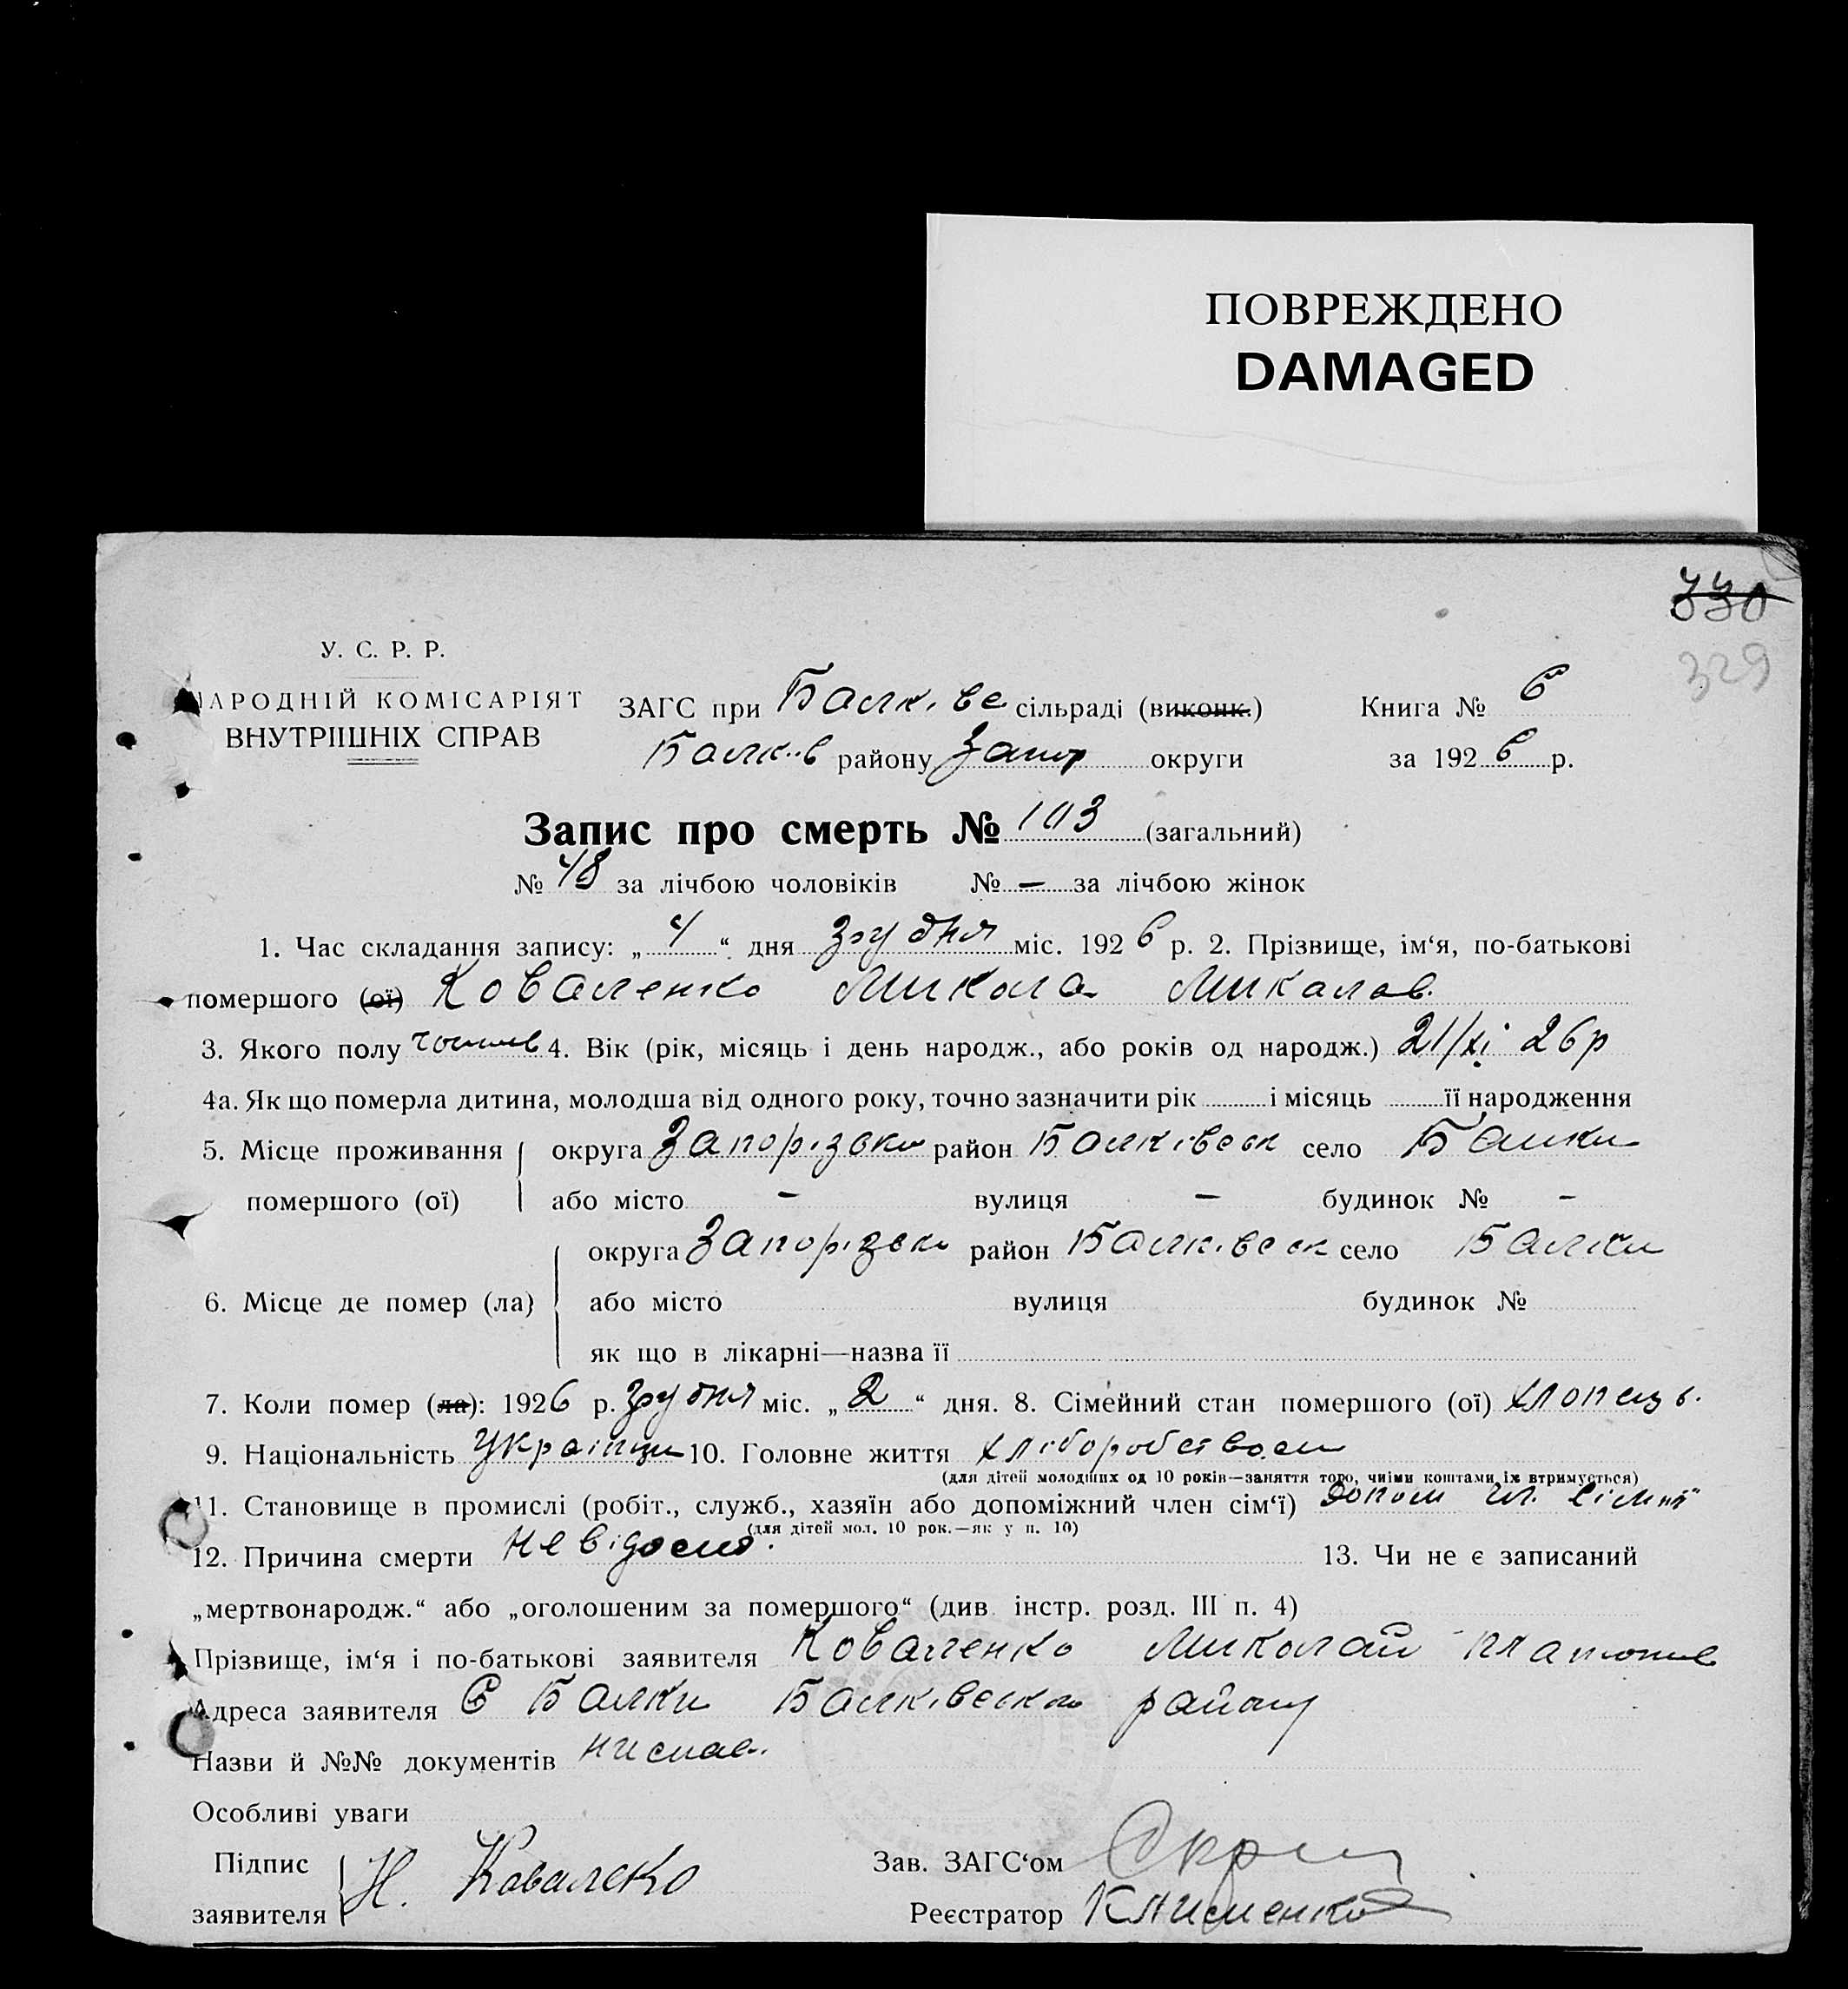 ПОВРЕЖДЕНО
DAMAGED
330
329
У. С. Р. Р.
НАРОДНІЙ КОМІСАРІЯТ
ВНУТРІШНІХ СПРАВ
ЗАГС при Балків. сільраді (виконк.) Книга № 6
Балків району Запор округи за 1926 р.
Запис про смерть № 103 (загальний)
№ 48 за лічбою чоловіків № — за лічбою жінок
1. Час складання запису: „ 4 “ дня грудня міс. 1926 р. 2. Прізвище, ім‘я, по-батькові
помершого (ої) Коваленко Микола Миколав.
3. Якого полу 4. Вік (рік, місяць і день народж., або років од народж.) 21/XI 26р
4а. Як що померла дитина, молодша від одного року, точно зазначити рік і місяць її народження
5. Місце проживання округа Запорізськ район Балківськ село Балки
помершого (ої) або місто – вулиця – будинок № –
округа Запорізськ район Балківськ село Балки
6. Місце де помер (ла) або місто вулиця будинок №
як що в лікарні—назва її
7. Коли помер (ла): 1926 р. грудня міс. „ 2 “ дня. 8. Сімейний стан помершого (ої) хлопець.
9. Національність Українц 10. Головне життя хліборобством
(для дітей молодших од 10 років—заняття того, чиїми коштами їх втримується)
11. Становище в промислі (робіт., служб., хазяїн або допоміжний член сім‘ї) допом чл. сімьї
(для дітей мол. 10 рок.—як у п. 10)
12. Причина смерти невідомо. 13. Чи не є записаний
„мертвонародж.“ або „оголошеним за помершого“ (див. інстр. розд. III п. 4)
Прізвище, ім‘я і по-батькові заявителя Коваленко Миколай Платонів
Адреса заявителя С Балки Балківського району
Назви й №№ документів
Особливі уваги
Підпис
заявителя Н. Ковалеко
Зав. ЗАГС‘ом
Реєстратор Клименко